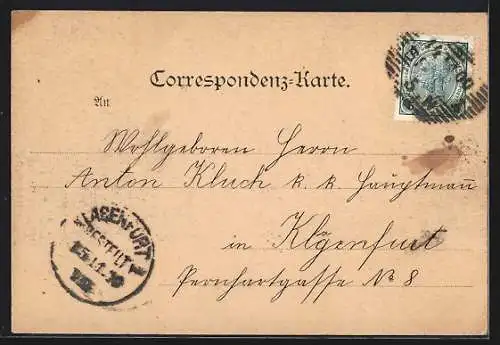 Correspondenz-Karte.
An
Wohlgeboren Herrn
Anton Kluch k. k. Hauptmann
in Klgenfurt
Pernhartgasse No 8
KLAGENFURT 1
BESTELLT